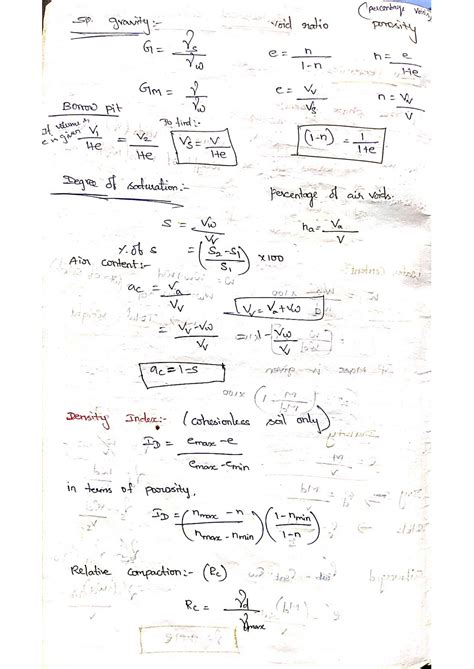 Sp. gravity:-
G = γs/γw
Gm = γ/γw
void ratio
e = n/1-n
e = Vv/Vs
(percentage voids
porosity
n = e/1+e
n = Vv/V
(1-n) = 1/1+e
Borrow pit
If volume is
e n given
V1/1+e = V2/1+e
To find:-
Vs = V/1+e
Degree of saturation:-
S = Vw/Vv
% of s = (S2-S1/S1) x100
percentage of air voids.
na = Va/V
Air content:-
ac = Va/Vv
Vv = Va+Vw
= Vv-Vw/Vv = 1- Vw/Vv
ac = 1-S
Density Index:- (cohesionless soil only)
ID = emax-e/emax-emin
in terms of porosity,
ID = (nmax-n/nmax-nmin)(1-nmin/1-n)
Relative compaction:- (Rc)
Rc = γd/γmax